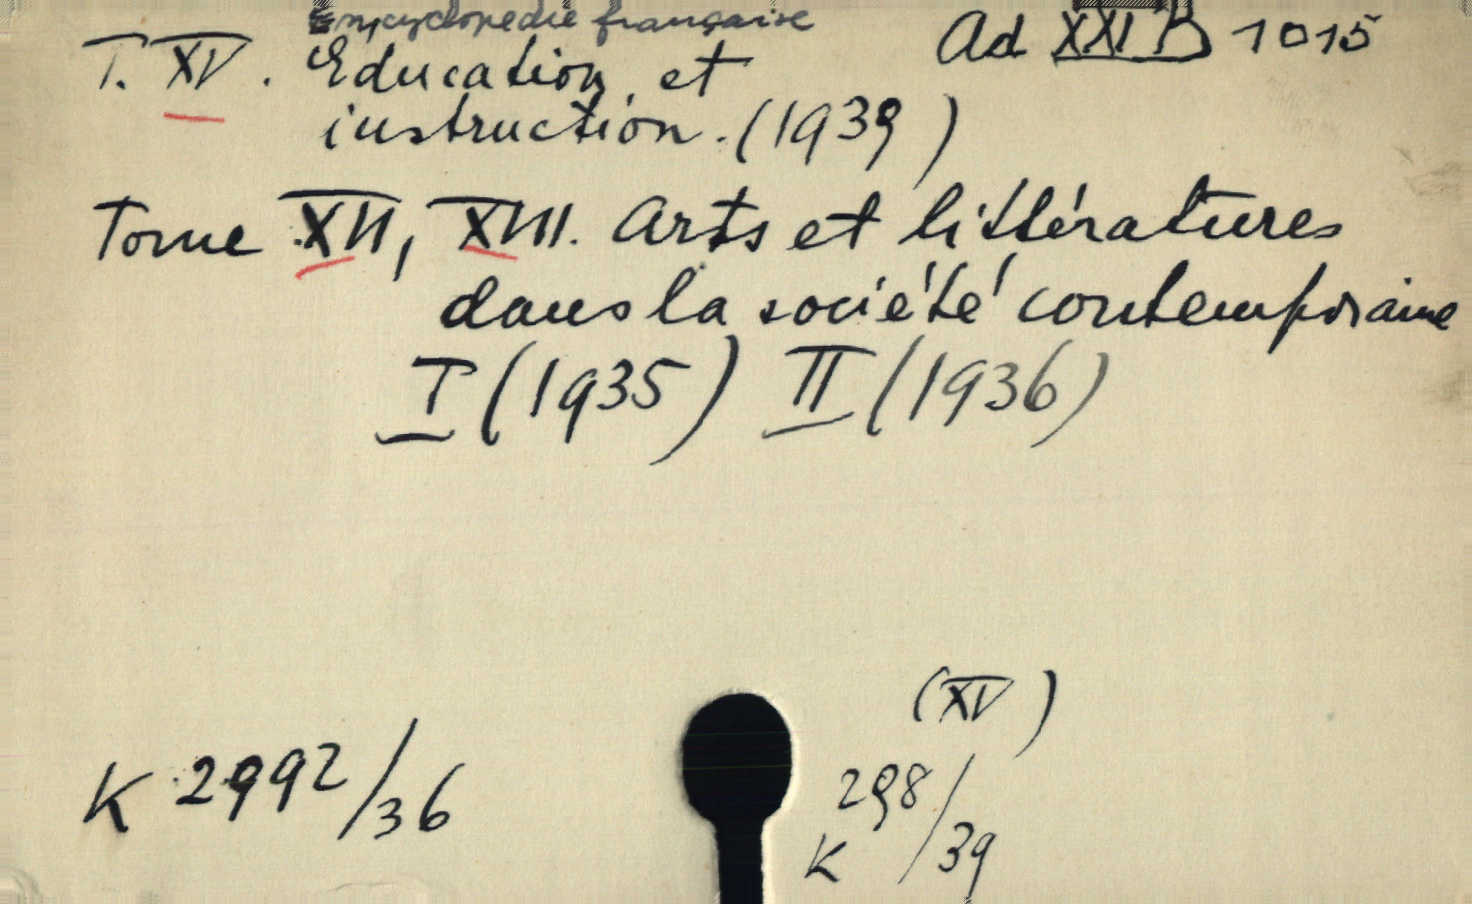 Encyclopédie française
Ad XXI B 1015
T. XV. Education et
instruction. (1939)
Tome XVI, XVII. Arts et littératures
dans la société contemporaine
I (1935) II (1936)
(XV)
K 2992/36
K 298/39